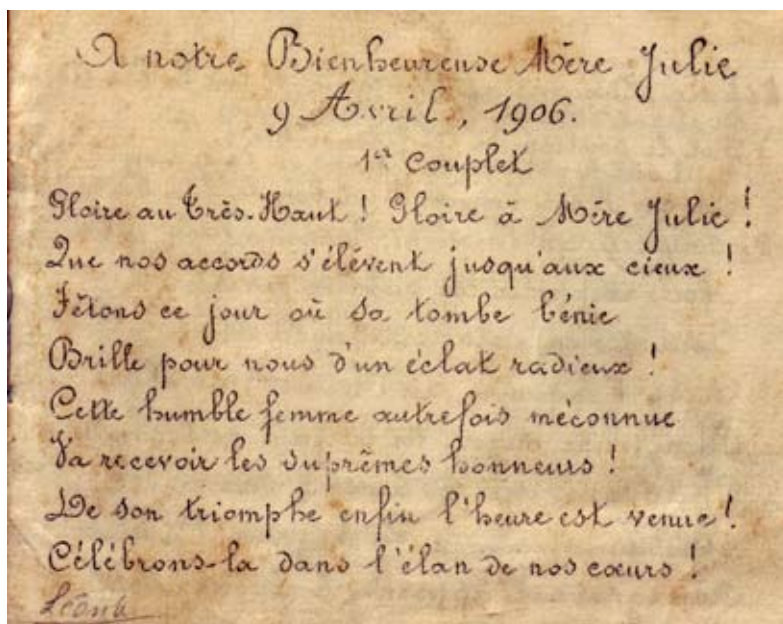 A notre Bienheureuse Mère Julie
9 Avril, 1906.
1er Couplet
Gloire au Très-Haut ! Gloire à Mère Julie !
Que nos accords s'élèvent jusqu'aux cieux !
Fêtons ce jour où sa tombe bénie
Brille pour nous d'un éclat radieux !
Cette humble femme autrefois méconnue
Va recevoir les suprêmes honneurs !
De son triomphe enfin l'heure est venue !
Célébrons-la dans l'élan de nos cœurs !